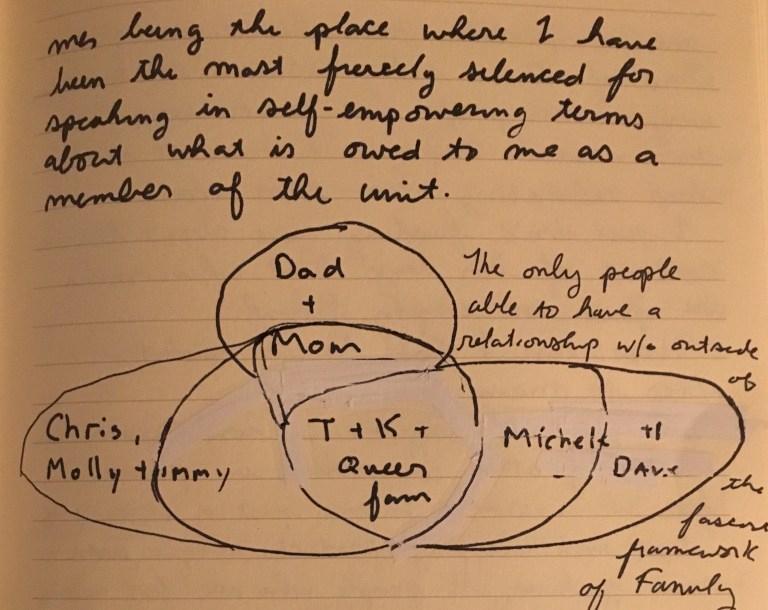 mes being the place where I have
been the most fiercely silenced for
speaking in self-empowering terms
about what is owed to me as a
member of the unit.
Dad
+
Mom
The only people
able to have a
relationship w/o outside
of
the
framework
of Family
Chris,
Molly +
T + K +
Queer
fam
Michele +
Dave